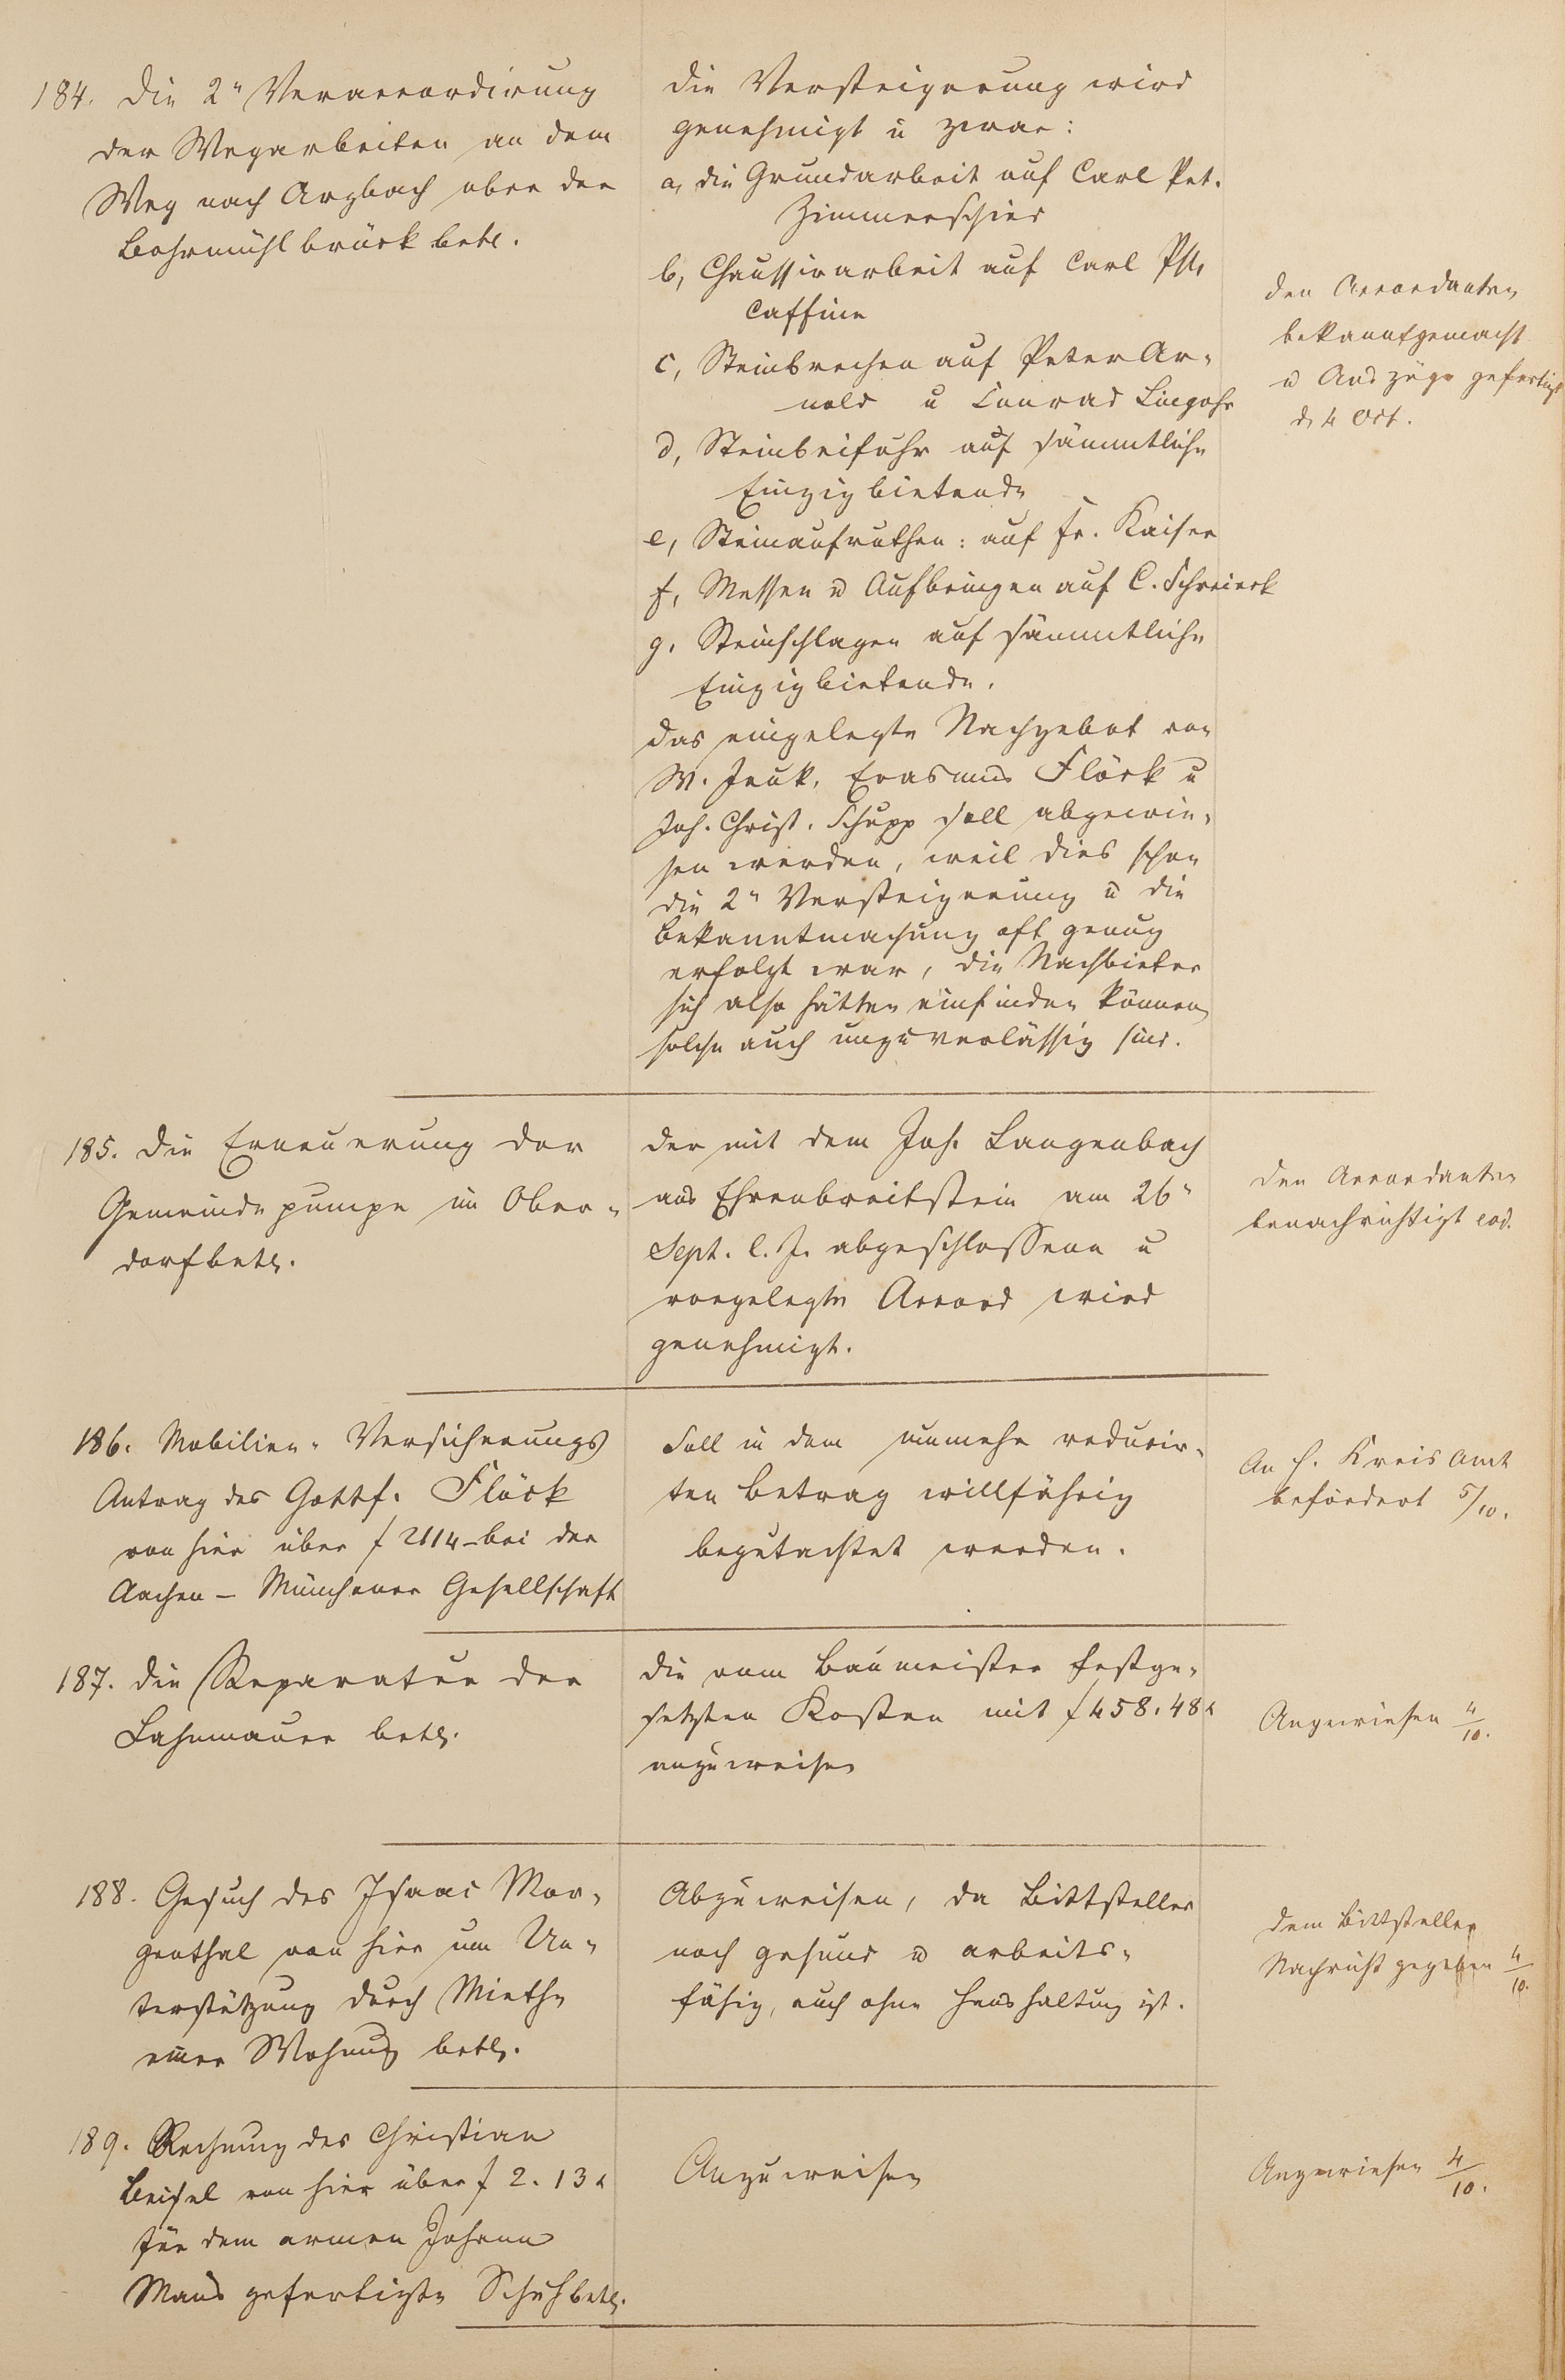 184. Die 2te Veraccordirung
der Wegarbeiten an dem
Weg nach Arzbach ober der
Bohrmühlbrück betr.
Die Versteigerung wird
genehmigt u zwar:
a, die Grundarbeit auf Carl Pet.
Zimmerschied
b, Chaussirarbeit auf Carl Ph.
Caffine
c, Steinbrechen auf Peter Ar-
nold u Conrad Lingohr
d, Steinbeifuhr auf sämmtliche
Einzigbietende
e, Steinaufruthen: auf Fr. Kaiser
f, Messen u Aufbringen auf C. Schreieck
g, Steinschlagen auf sämmtliche
Einzigbietende.
Das eingelegte Nachgebot von
W. Jeuk, Erasmus Flöck u
Joh. Christ. Schupp soll abgewie-
sen werden, weil dies schon
die 2te Versteigerung u die
Bekanntmachung oft genug
erfolgt war, die Nachbieter
sich also hätten einfinden können
solche auch unzuverlässig sind.
Den Accordanten
bekanntgemacht
u Auszüge gefertigt
d. 4 Oct.
185. Die Erneuerung der
Gemeindepumpe im Ober-
dorf betr.
Der mit dem Joh. Langenbach
aus Ehrenbreitstein am 26ten
Sept. l. J. abgeschlossene u
vorgelegte Accord wird
genehmigt.
Den Accordanten
benachrichtigt eod.
186. Mobilien-Versicherungs
Antrag des Gottf. Flöck
von hier über f 2114 - bei der
Aachen - Münchener Gesellschaft
Soll in dem nunmehr reducir-
ten Betrag willfährig
begutachtet werden.
An H. Kreis Amt
befördert 5/10.
187. Die Reparatur der
Lahnmauer betr.
Die vom Baumeister festge-
setzten Kosten mit f 458. 48 x
anzuweisen
Angewiesen 4/10.
188. Gesuch des Isaac Mor-
genthal von hier um Un-
terstützung durch Miethe
einer Wohnung betr.
Abzuweisen, da Bittsteller
noch gesund u arbeits-
fähig, auch ohne Haushaltung ist.
Dem Bittsteller
Nachricht gegeben 4/10.
189. Rechnung des Christian
Beisel von hier über f 2. 13 x
für dem armen Johann
Maus gefertigte Schuh betr.
Anzuweisen
Angewiesen 4/10.